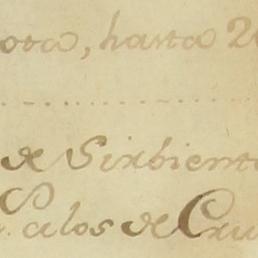 ota, hasta 2
de Sirbient
Palos de Cru